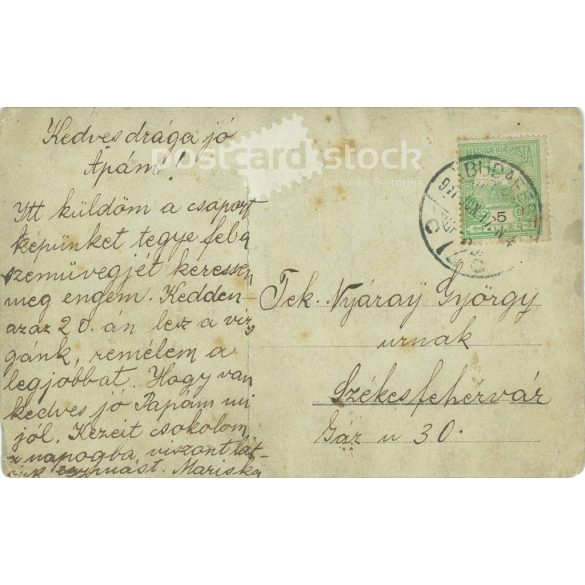 Kedves drága jó
Apám!
Itt küldöm a csaport
képünket tegye fel a
szemüvegjét keressen
meg engem. Kedden
azaz 20. án lesz a vizs
gánk, remélem a
legjobbat. Hogy van
kedves jó Papám mi
jól. Kezeit csokolom
napogba, viszontlát-
egymást. Mariska
postcard stock
pictures & stories
MAGYAR KIR. POSTA
5
BUDAPEST
Tek. Nyáraÿ György
urnak
Székesfehervár
Gáz u 30.